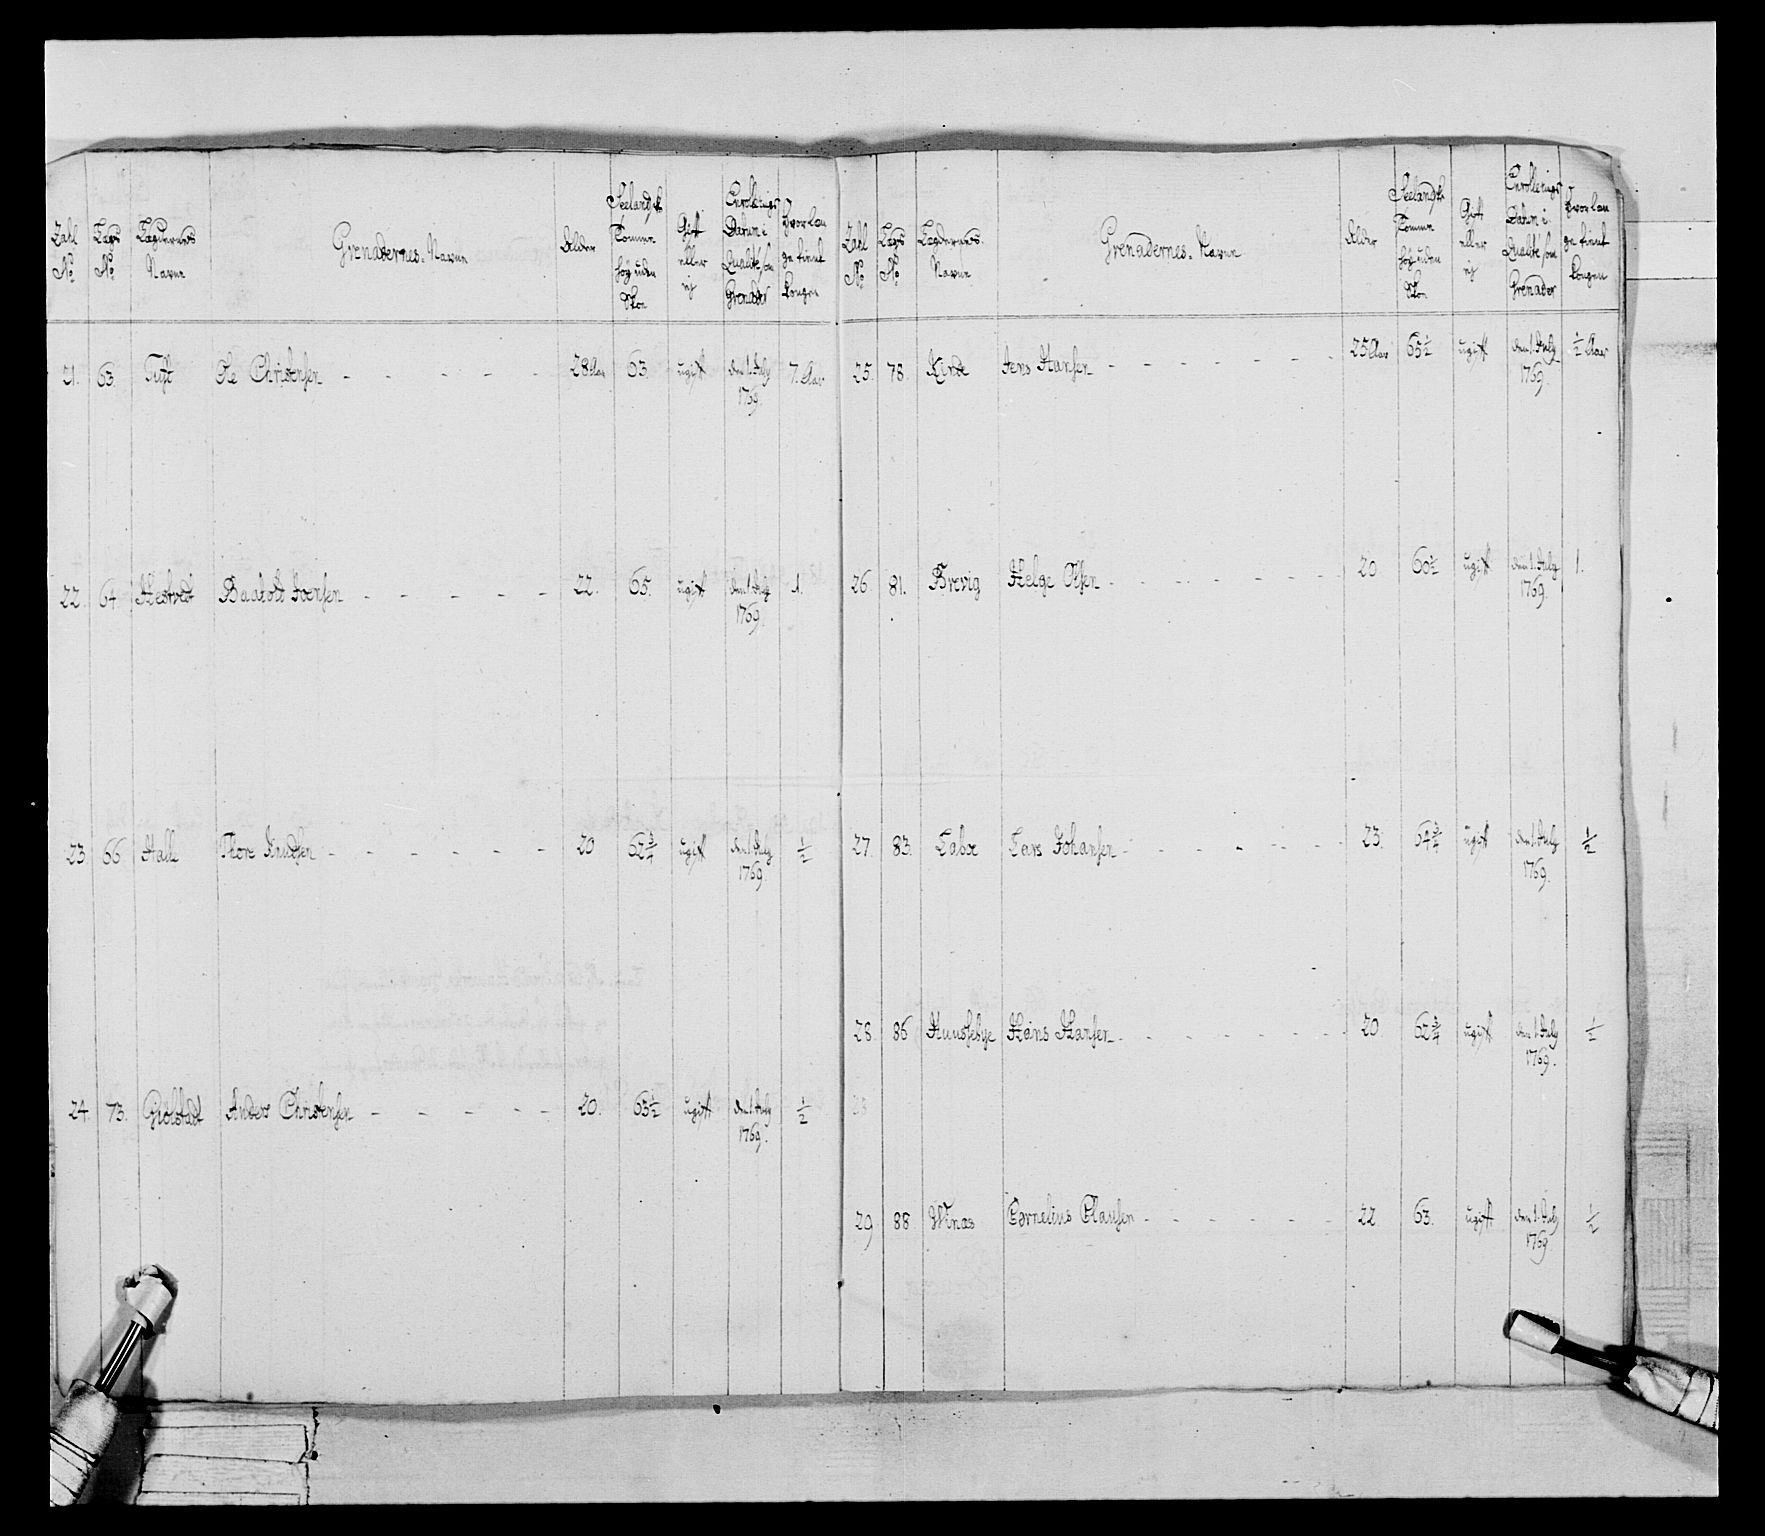 Zahl No
Lægs No
Lægdernes Navne
Grenadernes Navne
Alder
Seelandsk Tomme høy uden Skoe
Gift eller ej
Enrollerings Datum i Qualité som Grenader
Hvorlænge tient Kongen
21. 63. Tufft Ole Christensen - - - - - - 28 Aar 63. ugift den 1. July 1769. 7. Aar
22. 64. Hestved Baartolt Joensen - - - - - 22. 65. ugift den 1. July 1769. 1.
23. 66. Halle Thore Knudsen - - - - - - 20 62 3/4 ugift den 1. July 1769. 1/2
24. 73. Giølstadt Anders Christensen - - - - - 20. 63 1/2 ugift den 1. July 1769. 1/2
Zahl No
Lægs No
Lægdernes Navne
Grenadernes Navne
Alder
Seelandsk Tomme høy uden Skoe
Gift eller ej
Enrollerings Datum i Qualité som Grenader
Hvorlænge tient Kongen
25. 78. Jens Hansen - - - - - - 25 Aar 65 1/2 ugift den 1. July 1769. 1/2 Aar
26. 81. Brevig Helge Olsen - - - - - - 20 ugift den 1. July 1769. 1.
27. 83. Laboe Lars Johansen - - - - - - 23. 64 3/4 ugift den 1. July 1769. 1/2
28 86 Huusebye Hans Hansen - - - - - - 20. 62 3/4 ugift den 1. July 1769. 1/2
29 88 Winæs Cornelius Clausen - - - - - - 22 63. ugift den 1. July 1769 1/2